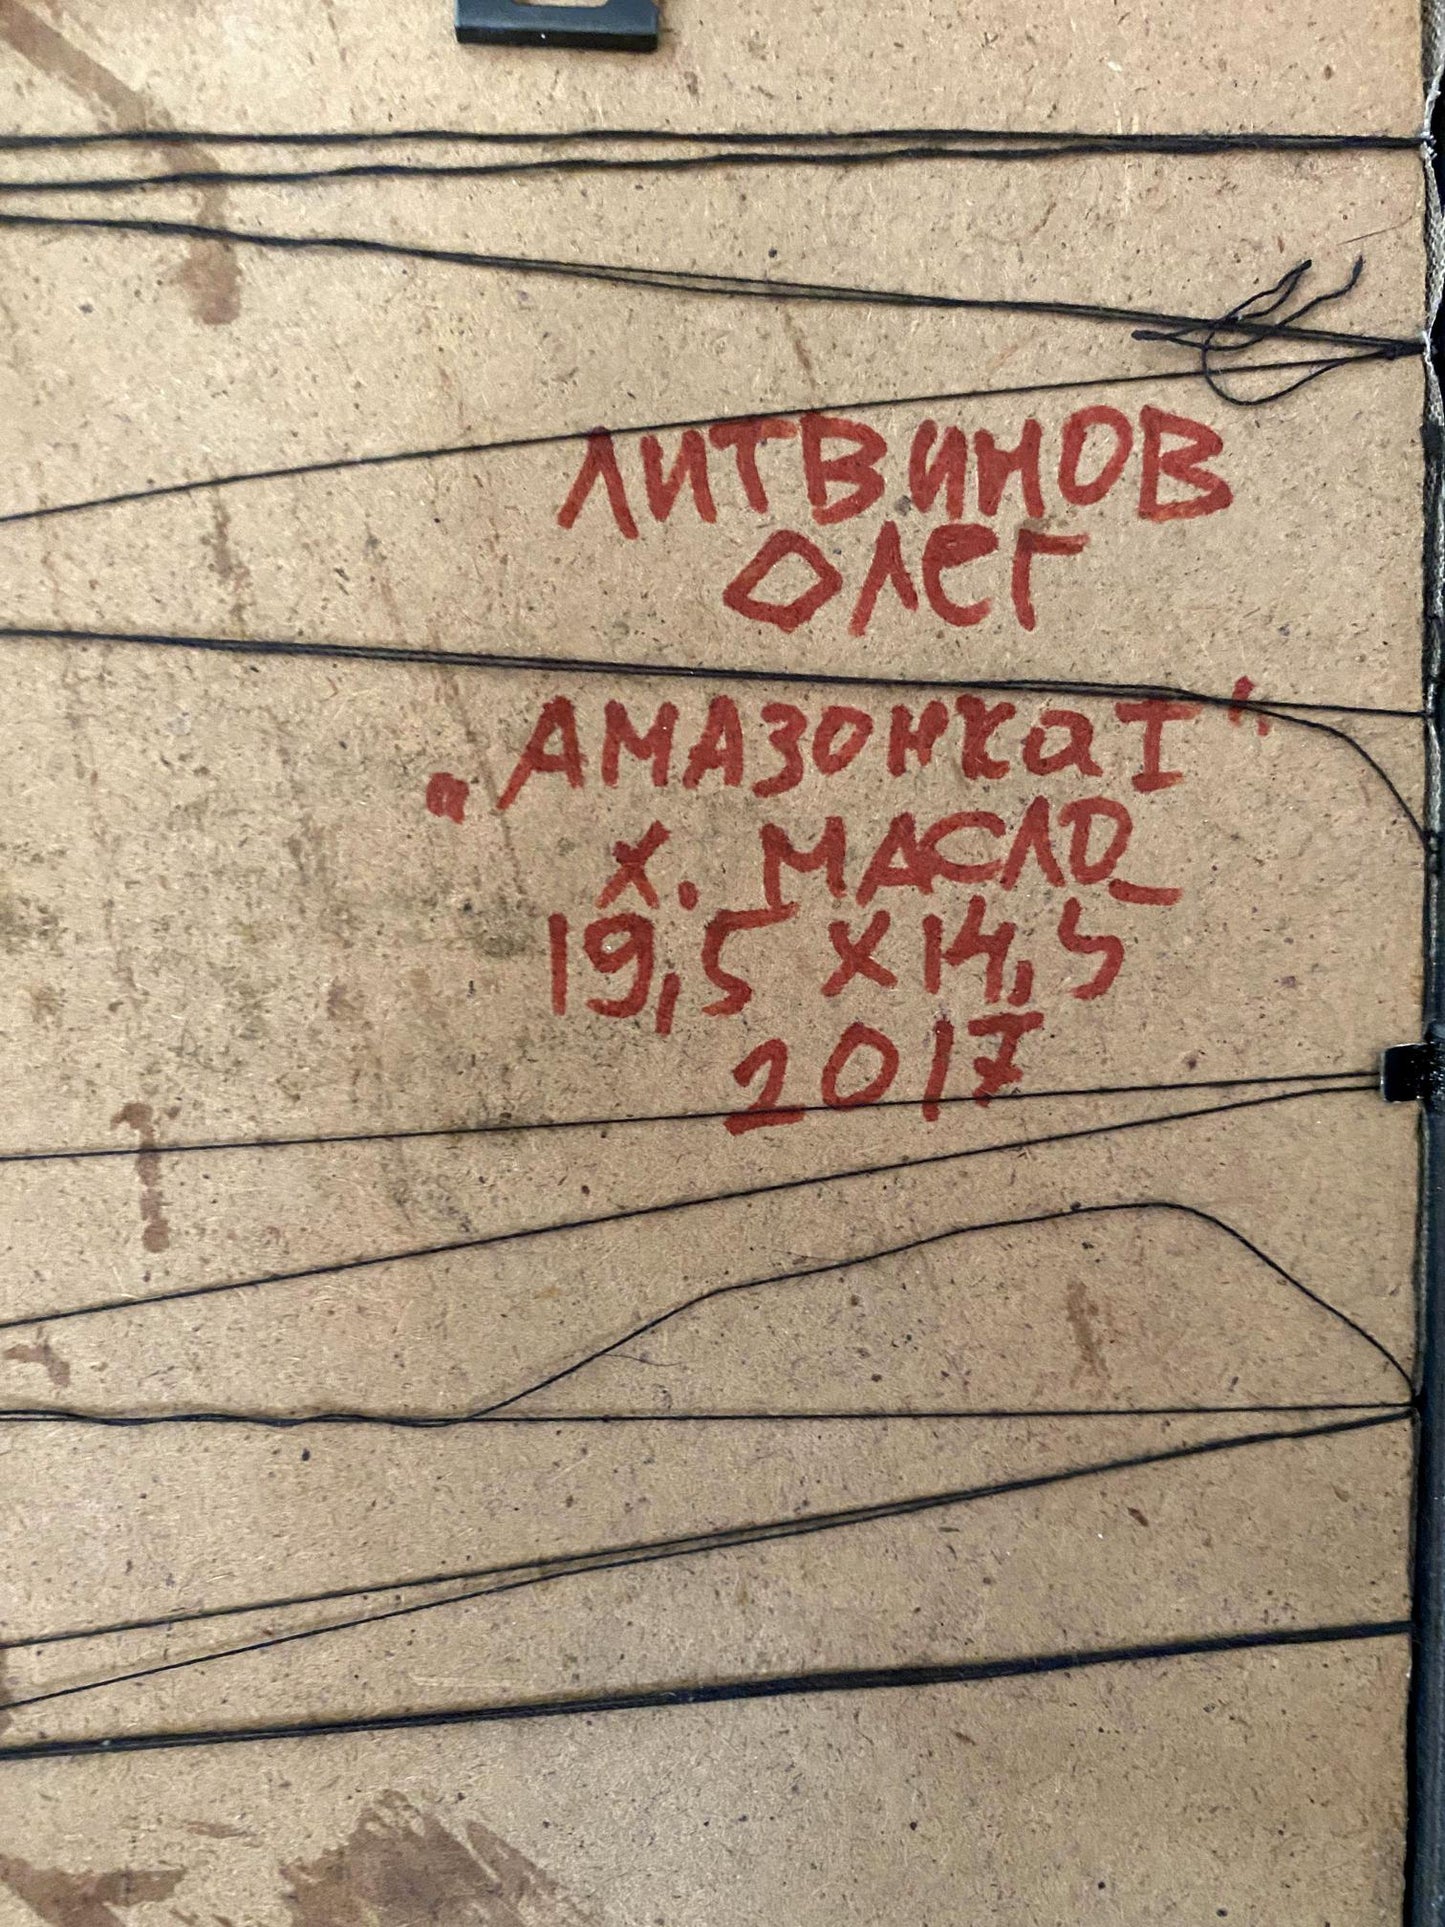 ЛИТВИНОВ
ОЛЕГ
„АМАЗОНКА I"
Х. МАСЛО
19,5 X 14,5
2017